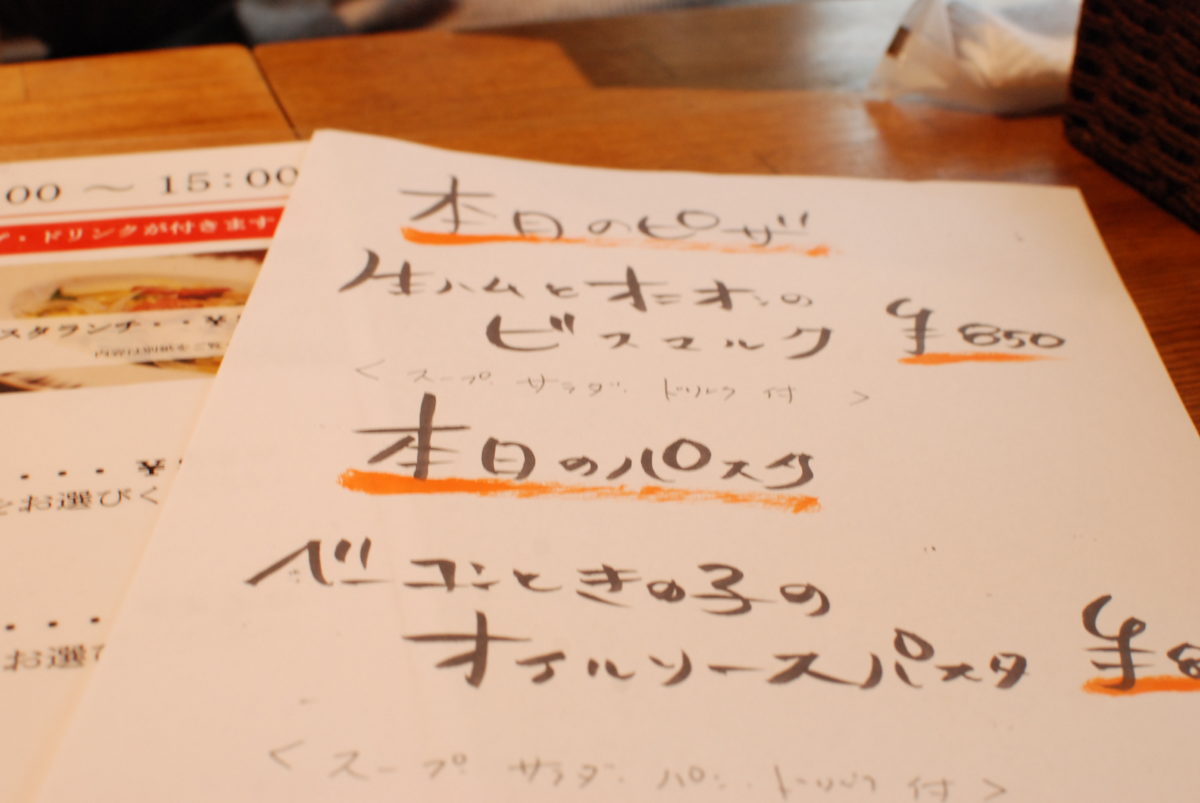 本日のピザ
生ハムとオニオンの
ビスマルク ¥850
<スープ・サラダ・ドリンク付>
本日のパスタ
ベーコンときの子の
オイルソースパスタ ¥8
<スープ・サラダ・パン・ドリンク付>
00 ～ 15:00
・ドリンクが付きます
スタランチ・・¥
内容は別紙をご覧
・・・¥
をお選びく
・・・・
お選び